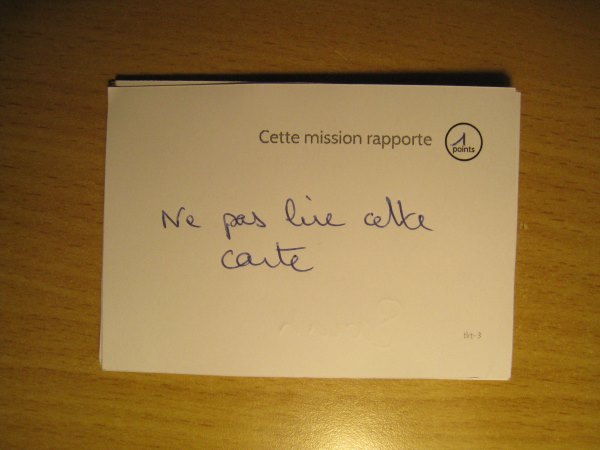 Cette mission rapporte 1 points
Ne pas lire cette
carte
tkt-3